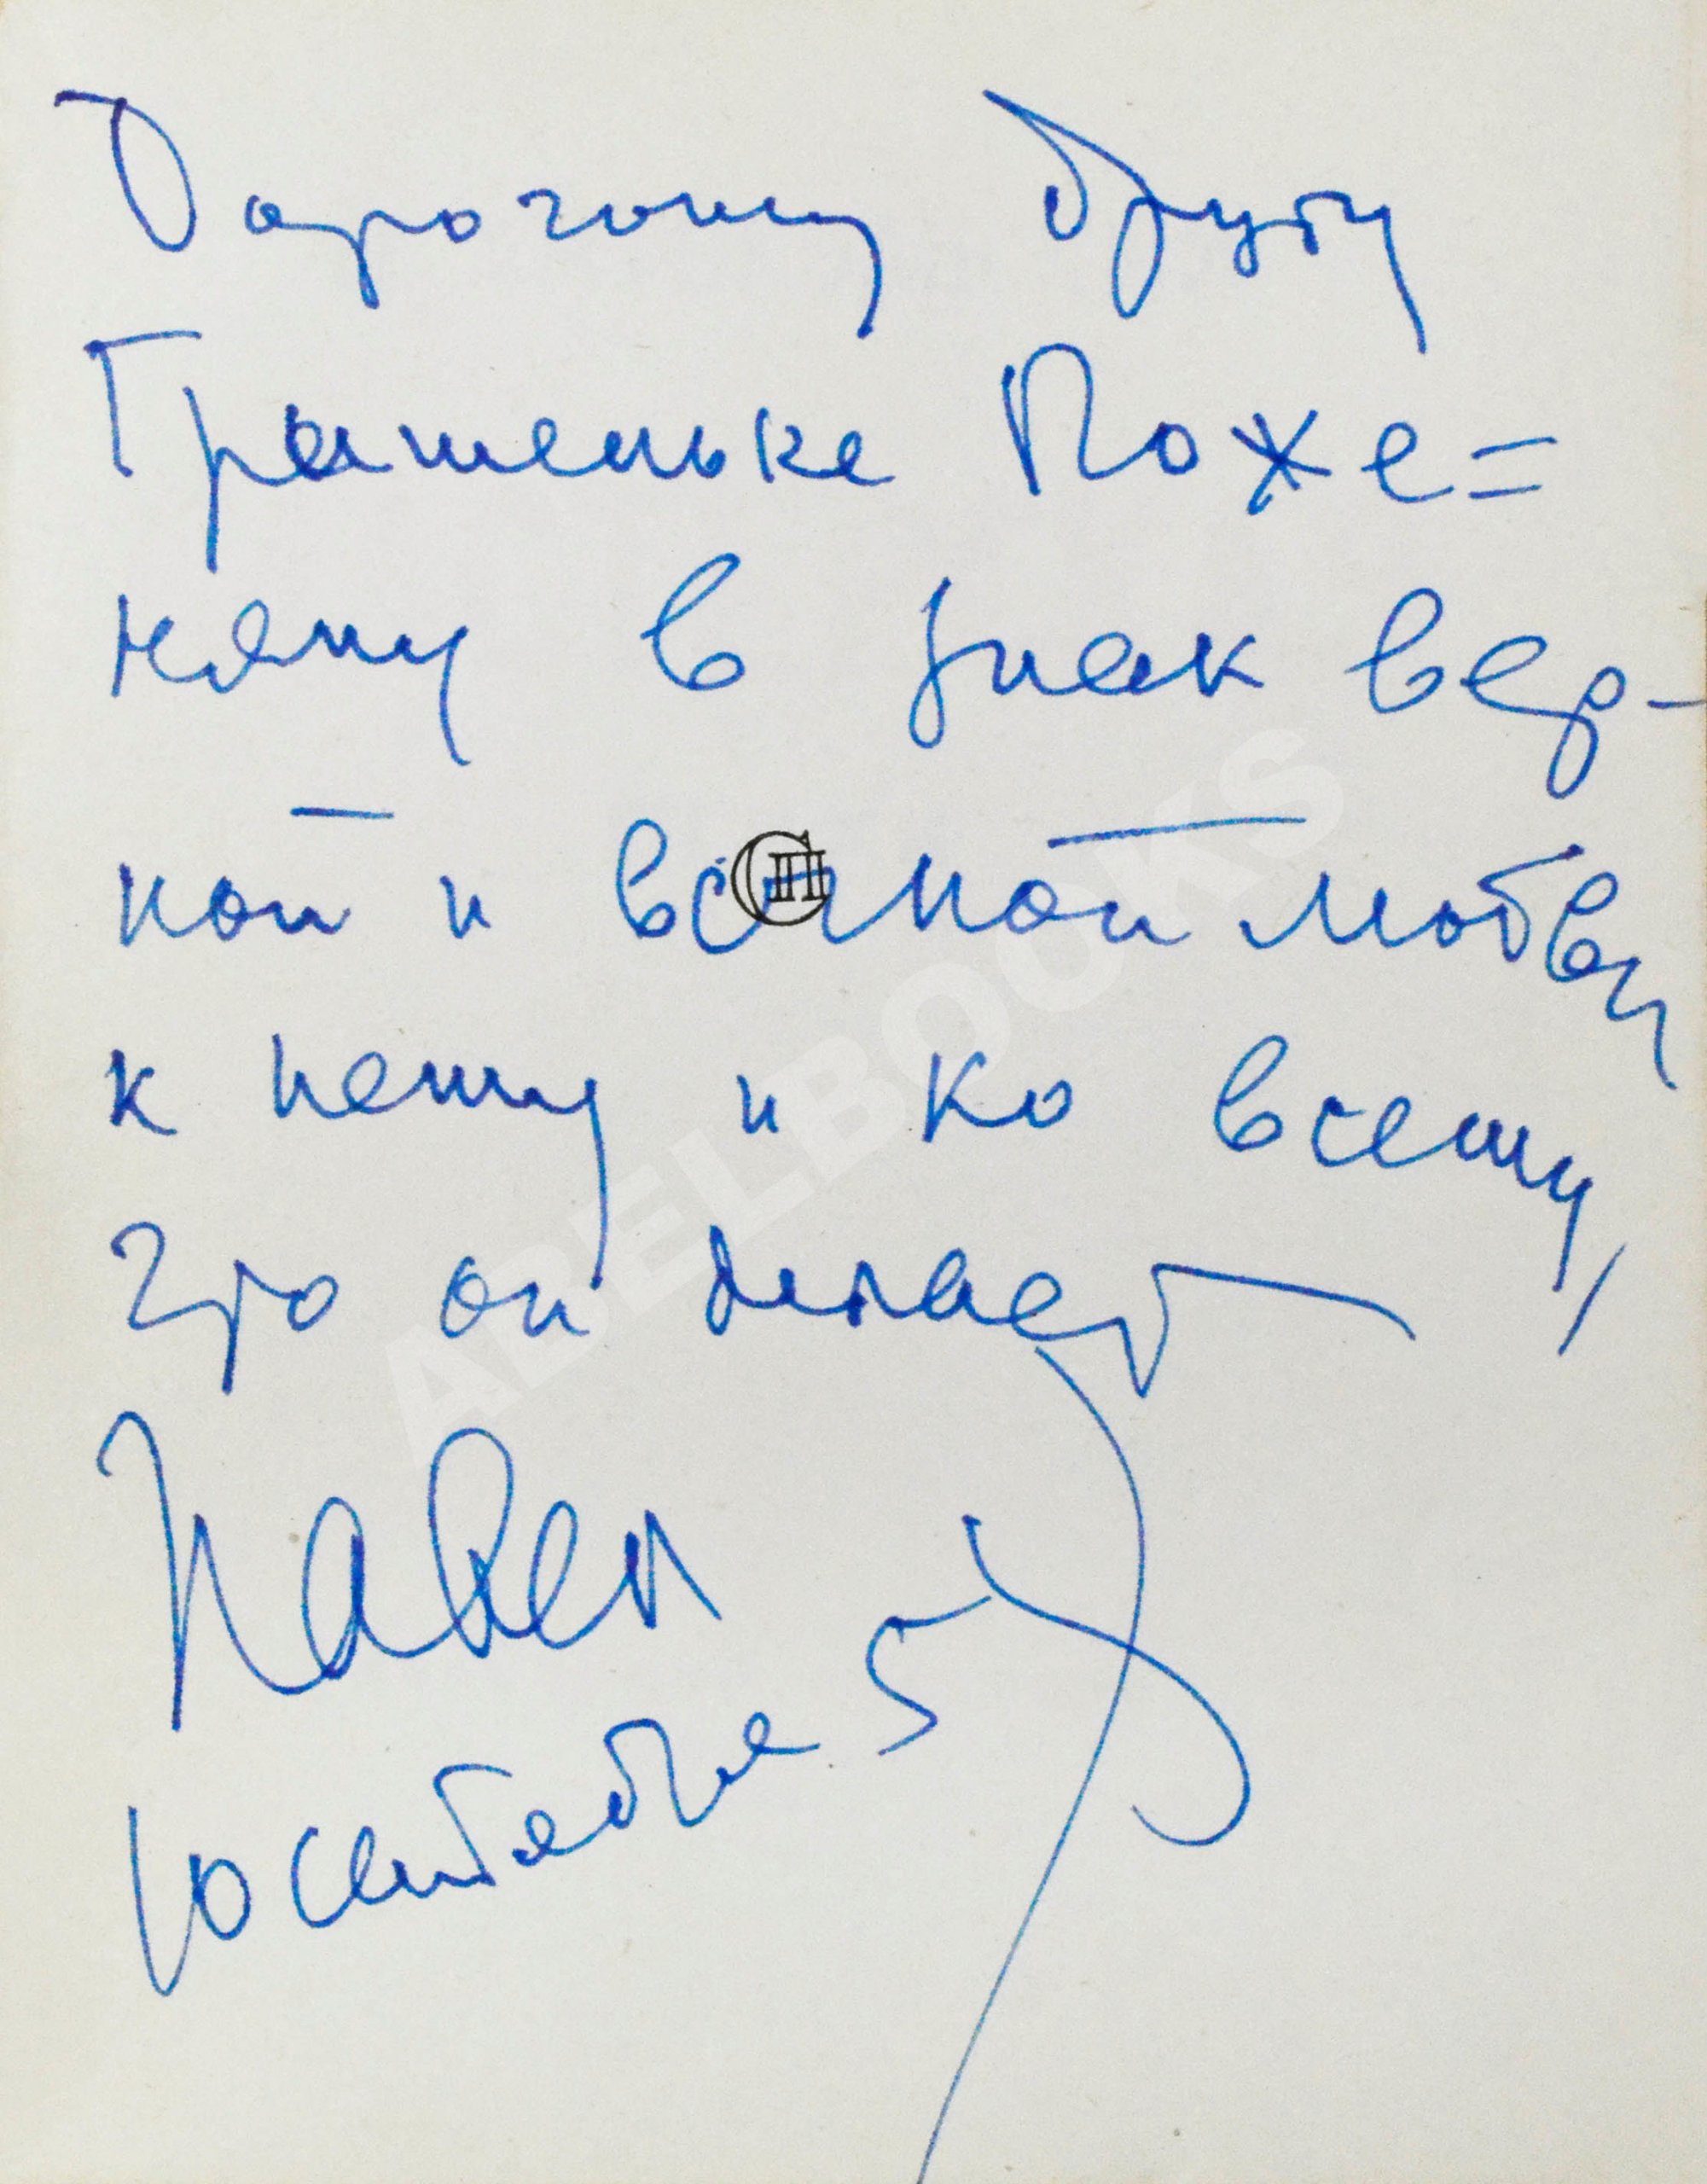 Дорогому другу
Гришеньке Поже=
няну в знак вер-
ной и любви
к нему и ко всему,
что он делает
Павел
10 сентября
СП
ABELBOOKS